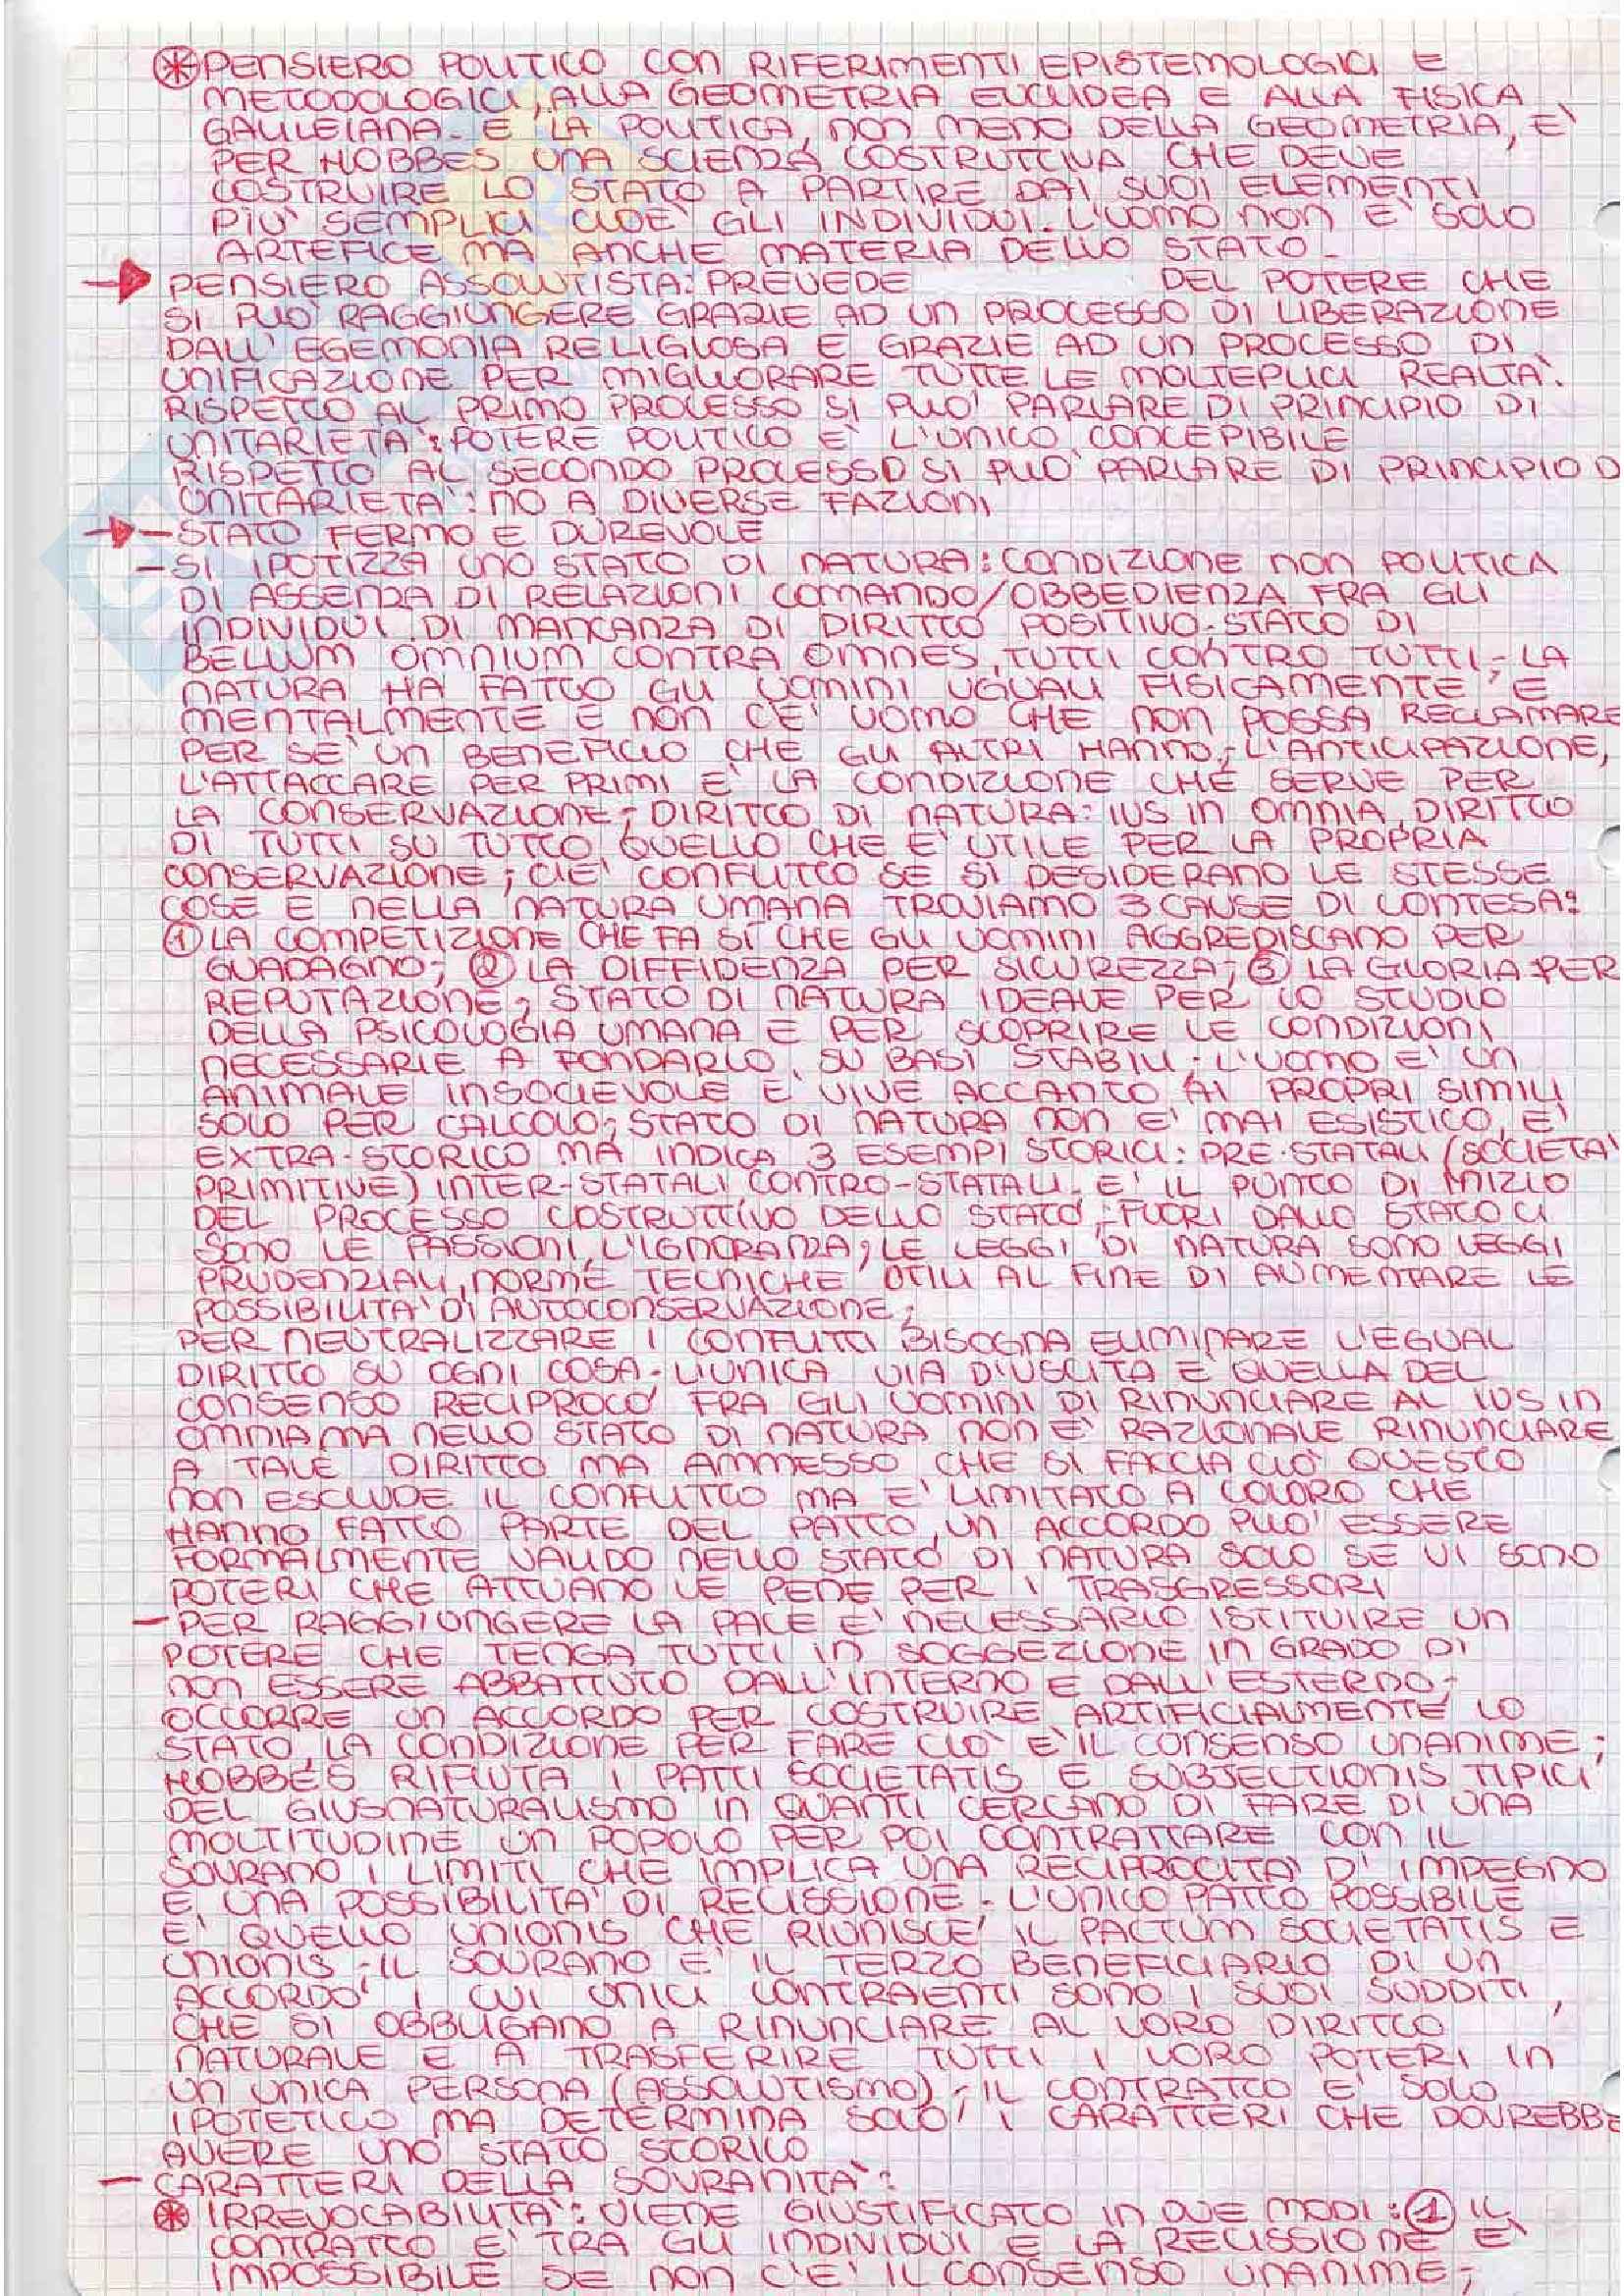 ⊛ PENSIERO POLITICO CON RIFERIMENTI EPISTEMOLOGICI E
METODOLOGICI, ALLA GEOMETRIA EUCLIDEA E ALLA FISICA
GALILEIANA. E LA POLITICA, NON MENO DELLA GEOMETRIA, E'
PER HOBBES UNA SCIENZA COSTRUTTIVA CHE DEVE
COSTRUIRE LO STATO A PARTIRE DAI SUOI ELEMENTI
PIU' SEMPLICI CIOE' GLI INDIVIDUI. L'UOMO NON E' SOLO
ARTEFICE MA ANCHE MATERIA DELLO STATO.
→ PENSIERO ASSOLUTISTA: PREVEDE DEL POTERE CHE
SI PUO' RAGGIUNGERE GRAZIE AD UN PROCESSO DI LIBERAZIONE
DALL'EGEMONIA RELIGIOSA E GRAZIE AD UN PROCESSO DI
UNIFICAZIONE PER MIGLIORARE TUTTE LE MOLTEPLICI REALTA'.
RISPETTO AL PRIMO PROCESSO SI PUO' PARLARE DI PRINCIPIO DI
UNITARIETA': POTERE POLITICO E' L'UNICO CONCEPIBILE
RISPETTO AL SECONDO PROCESSO SI PUO' PARLARE DI PRINCIPIO D
UNITARIETA': NO A DIVERSE FAZIONI
→ - STATO FERMO E DUREVOLE
- SI IPOTIZZA UNO STATO DI NATURA: CONDIZIONE NON POLITICA
DI ASSENZA DI RELAZIONI COMANDO/OBBEDIENZA FRA GLI
INDIVIDUI DI MANCANZA DI DIRITTO POSITIVO. STATO DI
BELLUM OMNIUM CONTRA OMNES, TUTTI CONTRO TUTTI; LA
NATURA HA FATTO GLI UOMINI UGUALI FISICAMENTE E
MENTALMENTE E NON C'E' UOMO CHE NON POSSA RECLAMARE
PER SE' UN BENEFICIO CHE GLI ALTRI HANNO; L'ANTICIPAZIONE,
L'ATTACCARE PER PRIMI E' LA CONDIZIONE CHE SERVE PER
LA CONSERVAZIONE; DIRITTO DI NATURA: IUS IN OMNIA, DIRITTO
DI TUTTI SU TUTTO QUELLO CHE E' UTILE PER LA PROPRIA
CONSERVAZIONE; C'E' CONFLITTO SE SI DESIDERANO LE STESSE
COSE E NELLA NATURA UMANA TROVIAMO 3 CAUSE DI CONTESA:
① LA COMPETIZIONE CHE FA SI' CHE GLI UOMINI AGGREDISCANO PER
GUADAGNO; ② LA DIFFIDENZA PER SICUREZZA; ③ LA GLORIA PER
REPUTAZIONE; STATO DI NATURA IDEALE PER LO STUDIO
DELLA PSICOLOGIA UMANA E PER SCOPRIRE LE CONDIZIONI
NECESSARIE A FONDARLO SU BASI STABILI; L'UOMO E' UN
ANIMALE INSOCIEVOLE E VIVE ACCANTO AI PROPRI SIMILI
SOLO PER CALCOLO; STATO DI NATURA NON E' MAI ESISTITO, E'
EXTRA-STORICO MA INDICA 3 ESEMPI STORICI: PRE-STATALI (SOCIETA'
PRIMITIVE) INTER-STATALI, CONTRO-STATALI. E' IL PUNTO DI INIZIO
DEL PROCESSO COSTRUTTIVO DELLO STATO; FUORI DALLO STATO CI
SONO LE PASSIONI, L'IGNORANZA; LE LEGGI DI NATURA SONO LEGGI
PRUDENZIALI, NORME TECNICHE UTILI AL FINE DI AUMENTARE LE
POSSIBILITA' DI AUTOCONSERVAZIONE;
PER NEUTRALIZZARE I CONFLITTI BISOGNA ELIMINARE L'EGUAL
DIRITTO SU OGNI COSA. L'UNICA VIA D'USCITA E' QUELLA DEL
CONSENSO RECIPROCO FRA GLI UOMINI DI RINUNCIARE AL IUS IN
OMNIA, MA NELLO STATO DI NATURA NON E' RAZIONALE RINUNCIARE
A TALE DIRITTO MA AMMESSO CHE SI FACCIA CIO' QUESTO
NON ESCLUDE IL CONFLITTO MA E' LIMITATO A COLORO CHE
HANNO FATTO PARTE DEL PATTO, UN ACCORDO PUO' ESSERE
FORMALMENTE VALIDO NELLO STATO DI NATURA SOLO SE VI SONO
POTERI CHE ATTUANO LE PENE PER I TRASGRESSORI
- PER RAGGIUNGERE LA PACE E' NECESSARIO ISTITUIRE UN
POTERE CHE TENGA TUTTI IN SOGGEZIONE IN GRADO DI
NON ESSERE ABBATTUTO DALL'INTERNO E DALL'ESTERNO;
OCCORRE UN ACCORDO PER COSTRUIRE ARTIFICIALMENTE LO
STATO, LA CONDIZIONE PER FARE CIO' E' IL CONSENSO UNANIME;
HOBBES RIFIUTA I PATTI SOCIETATIS E SUBJECTIONIS TIPICI
DEL GIUSNATURALISMO IN QUANTI CERCANO DI FARE DI UNA
MOLTITUDINE UN POPOLO PER POI CONTRATTARE CON IL
SOVRANO I LIMITI CHE IMPLICA UNA RECIPROCITA' D'IMPEGNO
E UNA POSSIBILITA' DI RECISSIONE. L'UNICO PATTO POSSIBILE
E' QUELLO UNIONIS CHE RIUNISCE IL PACTUM SOCIETATIS E
UNIONIS; IL SOVRANO E' IL TERZO BENEFICIARIO DI UN
ACCORDO I CUI UNICI CONTRAENTI SONO I SUOI SUDDITI,
CHE SI OBBLIGANO A RINUNCIARE AL LORO DIRITTO
NATURALE E A TRASFERIRE TUTTI I LORO POTERI IN
UN UNICA PERSONA (ASSOLUTISMO); IL CONTRATTO E' SOLO
IPOTETICO MA DETERMINA SOLO I CARATTERI CHE DOVREBBE
AVERE UNO STATO STORICO
- CARATTERI DELLA SOVRANITA':
⊛ IRREVOCABILITA': VIENE GIUSTIFICATO IN DUE MODI: ① IL
CONTRATTO E' TRA GLI INDIVIDUI E LA RECISSIONE E'
IMPOSSIBILE SE NON C'E' IL CONSENSO UNANIME;